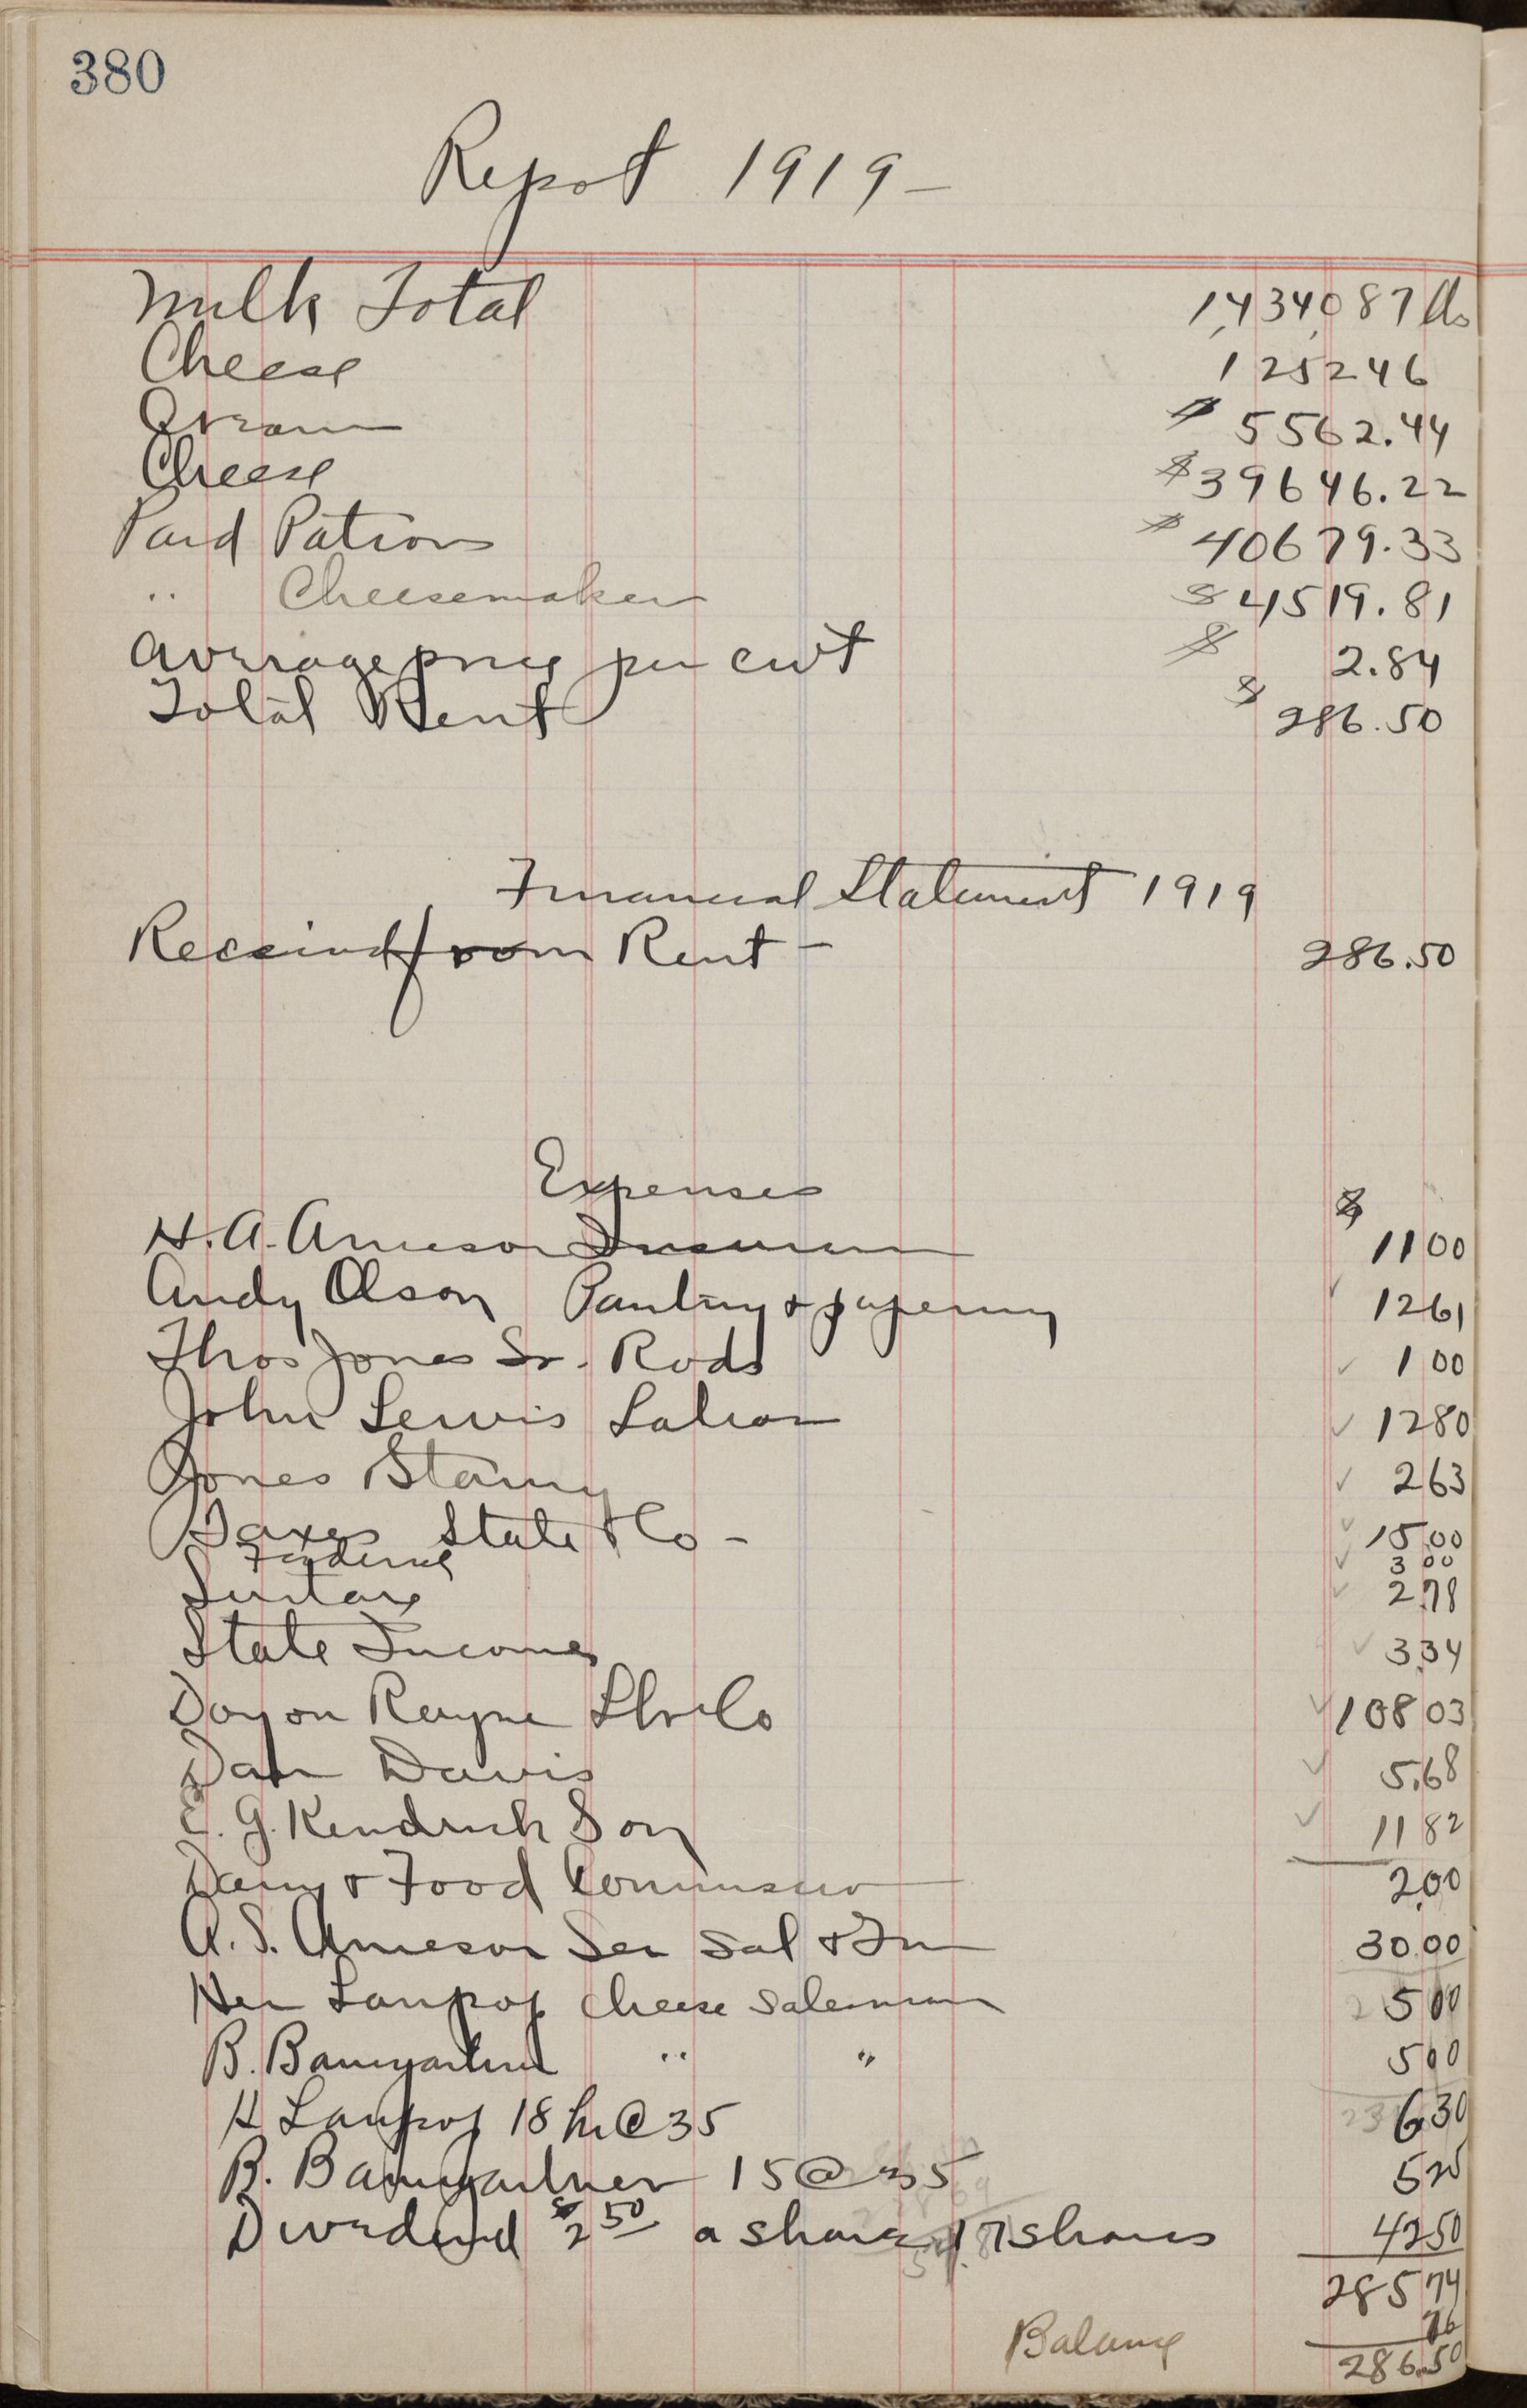 380
Repot 1919 –
Milk Total 1,434,087 lbs
Cheese 125246
Cream $ 5562.44
Cheese $ 39646.22
Paid Patrons $ 40679.33
" Cheesemaker $ 4519.81
Average price per cwt $ 2.84
Total Rent $ 286.50
Financial Statement 1919
Received from Rent – 286.50
Expenses $
H. A. Arneson Insurance 11 00
Andy Olson Painting & papering 12 61
Thos Jones Sr. Rods 1 00
John Lewis Labor 12 80
Jones 2 63
Taxes State & Co – 15.00
Federal 3 00
Surtax 2.78
State Income 3.34
108 03
Dan Davis 5.68
E. G. Kendrick Son 11 82
Dairy & Food Commission 2.00
A. S. Arneson Sec Sal & 30.00
Cheese Salesman 5 00
B. Baumgartner " " 5 00
H 18 hr @ 35 6.30
B. Baumgartner 15 @ 35 5 25
Dividend $2 50 a share 17 Shares 42 50
285 74
76
Balance 286.50